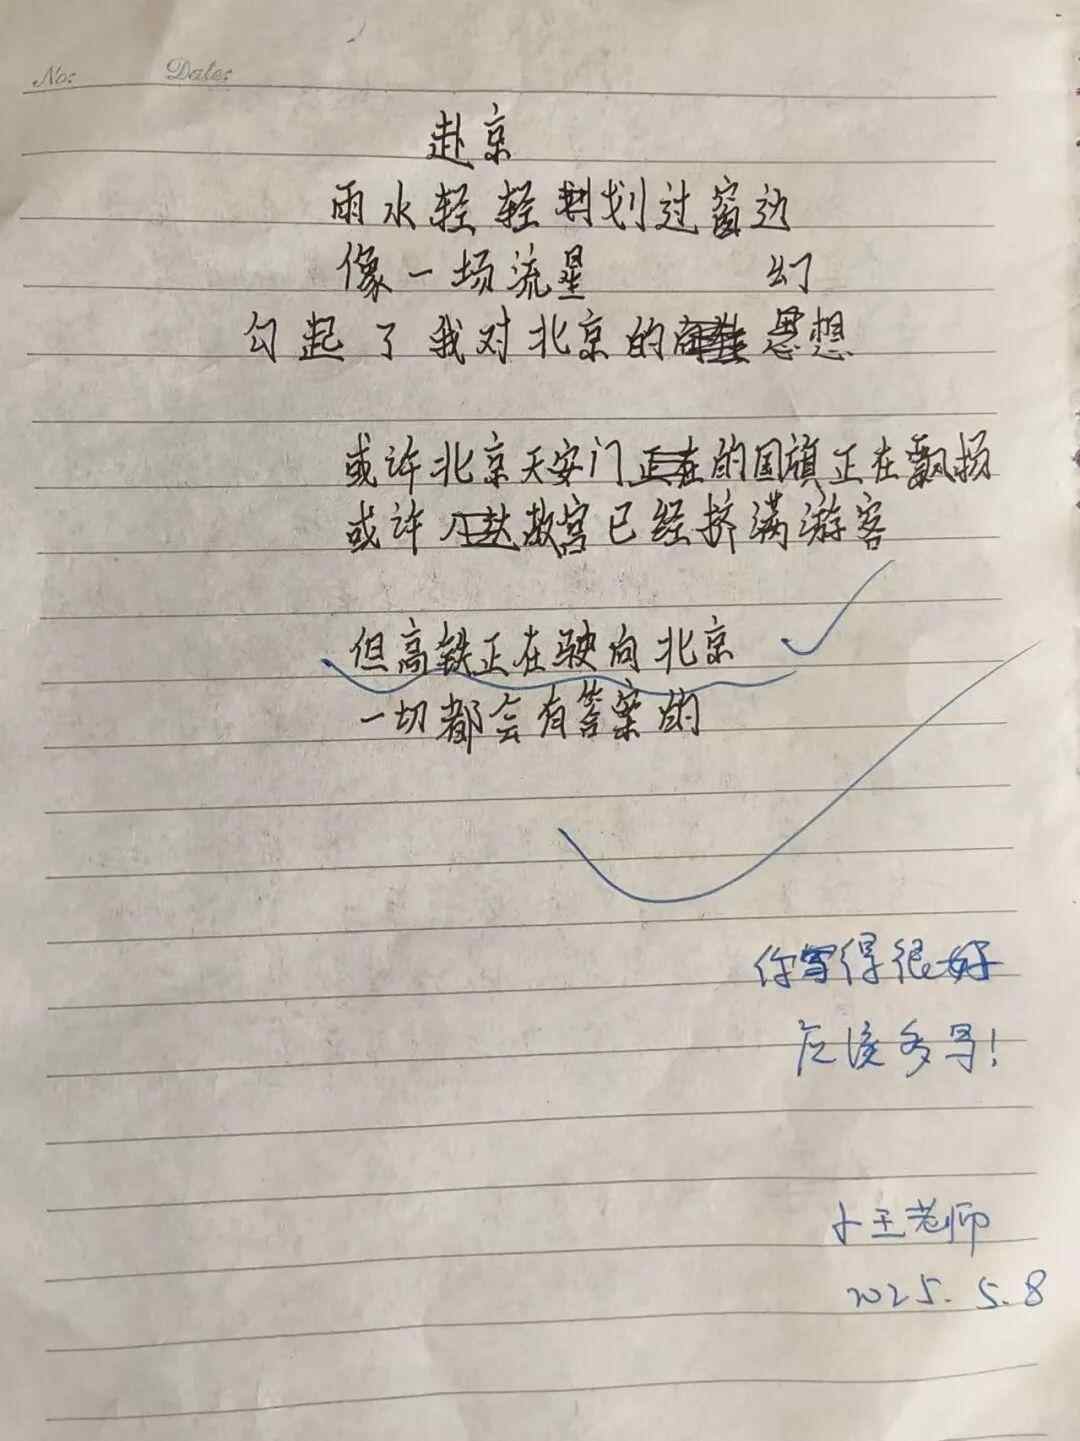 No: Date:
赴京
雨水轻轻划过窗边
像一场流星 幻
勾起了我对北京的思想
或许北京天安门的国旗正在飘扬
或许故宫已经挤满游客
但高铁正在驶向北京
一切都会有答案的
你写得很好
应该多写!
小王老师
2025.5.8